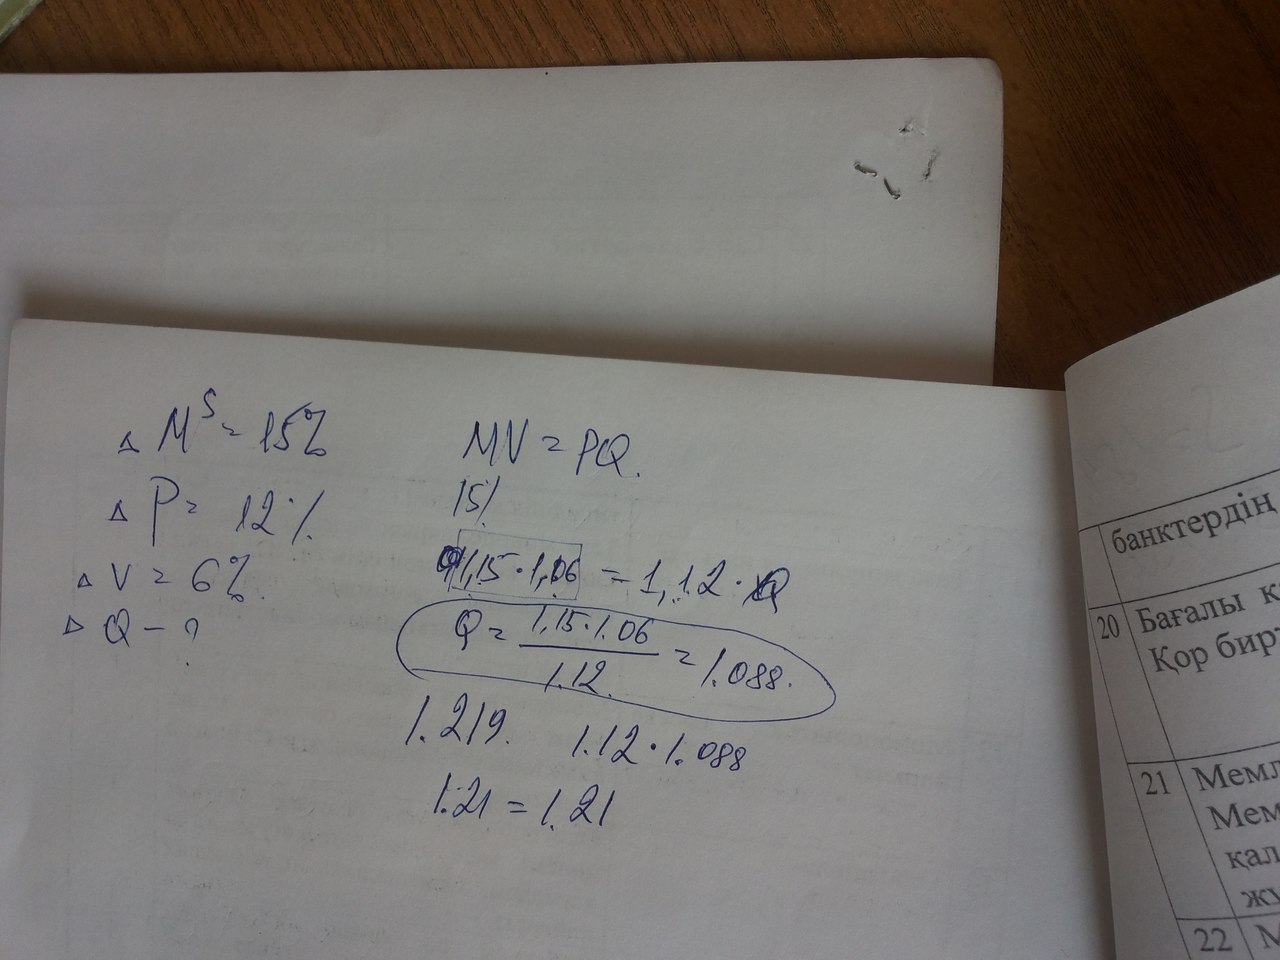 Δ Mˢ = 15%
Δ P = 12%
Δ V = 6%
Δ Q - ?
MV = PQ.
15%
1,15 · 1,06 = 1,12 · Q
Q = 1,15 · 1.06 / 1.12 = 1.088.
1.219. 1.12 · 1.088
1.21 = 1.21
банктердің
20 Бағалы
Қор
21
22